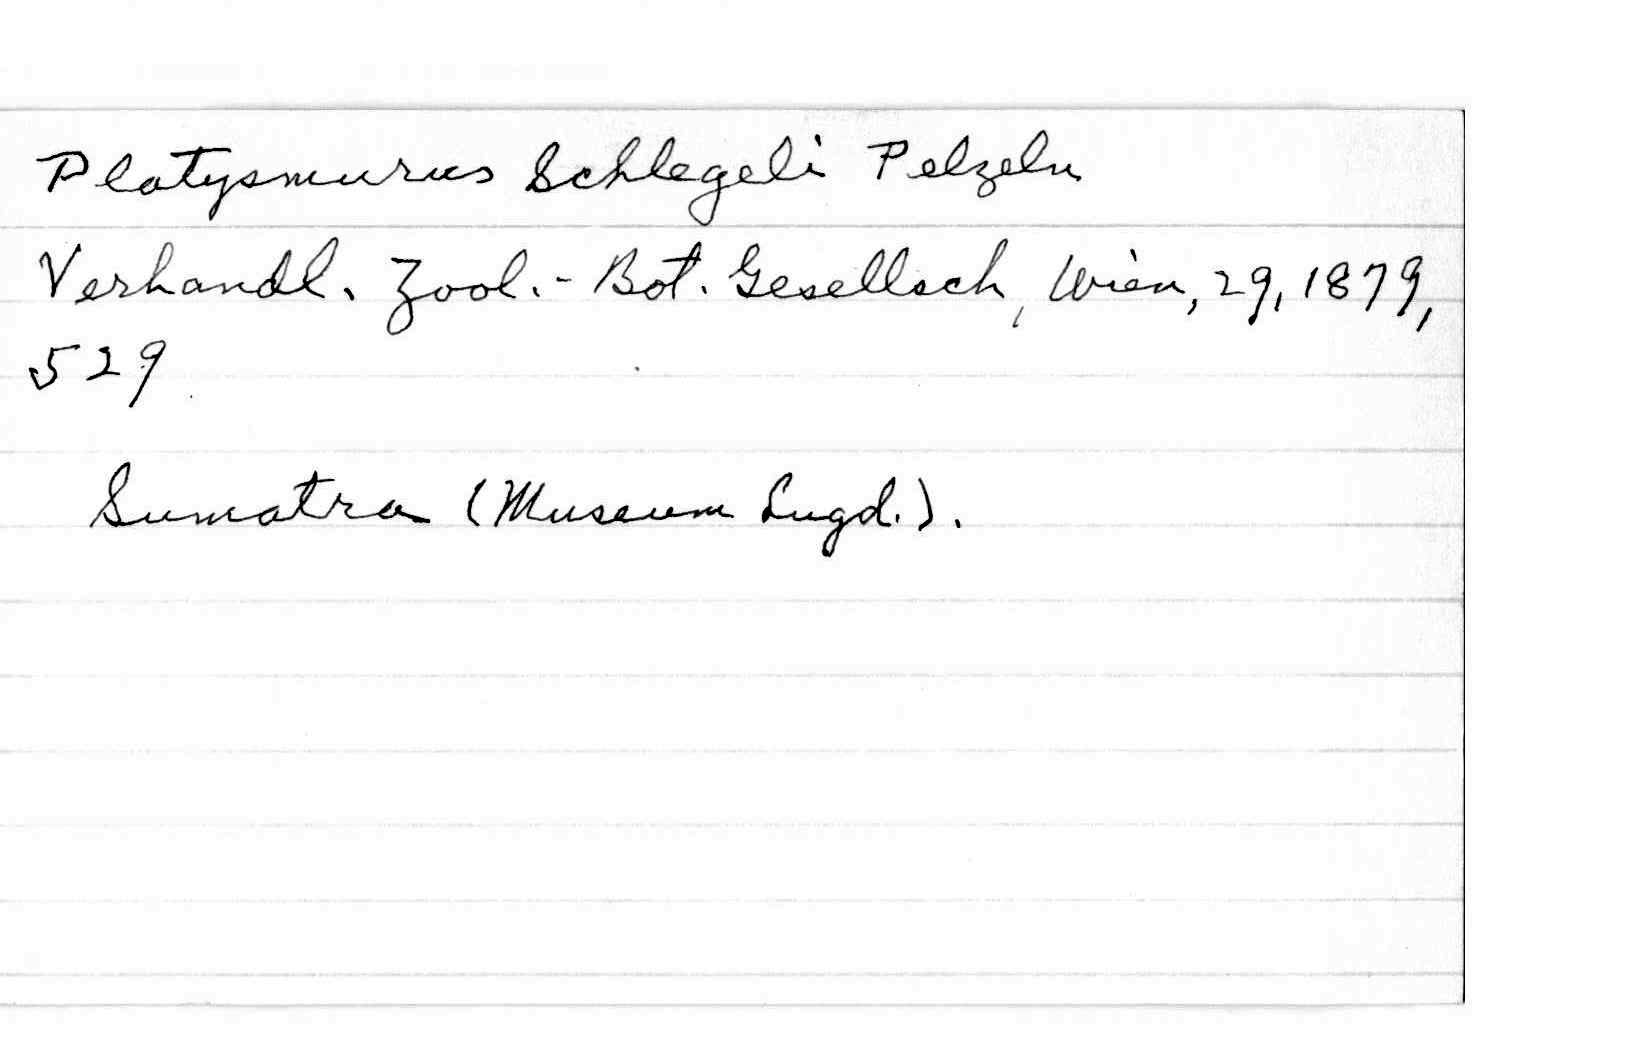 Platysmurus Schlegeli Pelzeln
Verhandl. Zool.-Bot. Gesellsch, Wien, 29, 1879,
529
Sumatra (Museum Lugd.).